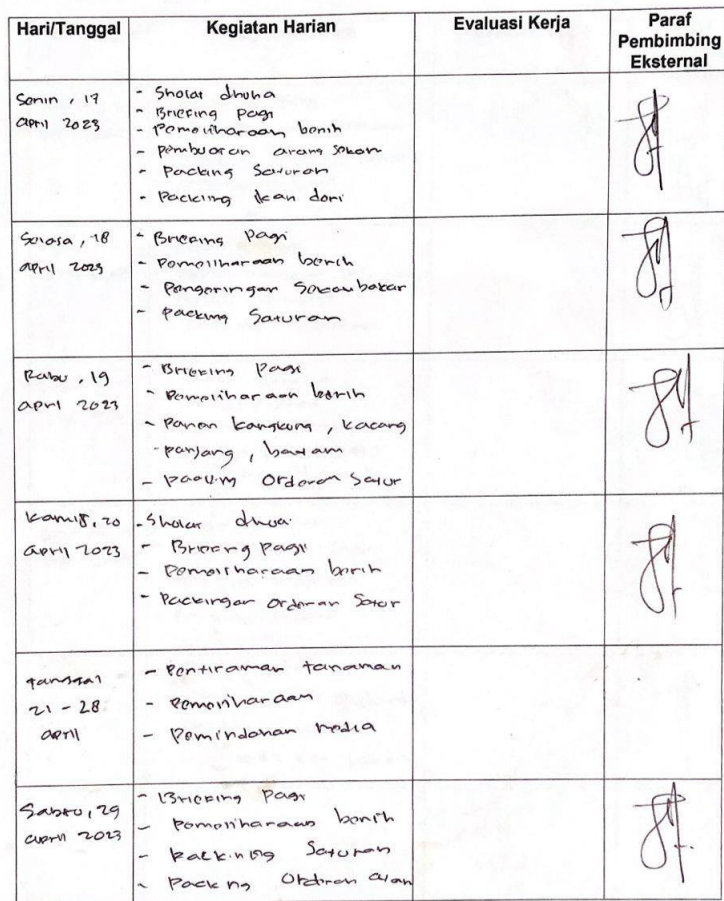 Hari/Tanggal
Kegiatan Harian
Evaluasi Kerja
Paraf
Pembimbing
Eksternal
Senin, 17
april 2023
- Sholat dhuha
- Briefing pagi
- Pemeliharaan benih
- pembuatan arang sekam
- Packing Sayuran
- Packing ikan dori
Selasa, 18
april 2023
- Briefing Pagi
- Pemeliharaan benih
- Pengeringan Sekam bakar
- Packing Sayuran
Rabu, 19
april 2023
- Briefing Pagi
- Pemeliharaan benih
- Panen kangkung, kacang
- panjang, bayam
- Packing Orderan Sayur
Kamis, 20
april 2023
- Sholat dhua
- Briefing Pagi
- Pemeliharaan benih
- Packingan orderan Sayur
tanggal
21 - 28
april
- Penyiraman tanaman
- Pemeliharaan
- Pemindahan media
Sabtu, 29
april 2023
- Briefing Pagi
- Pemeliharaan benih
- Packining Sayuran
- Packing Orderan